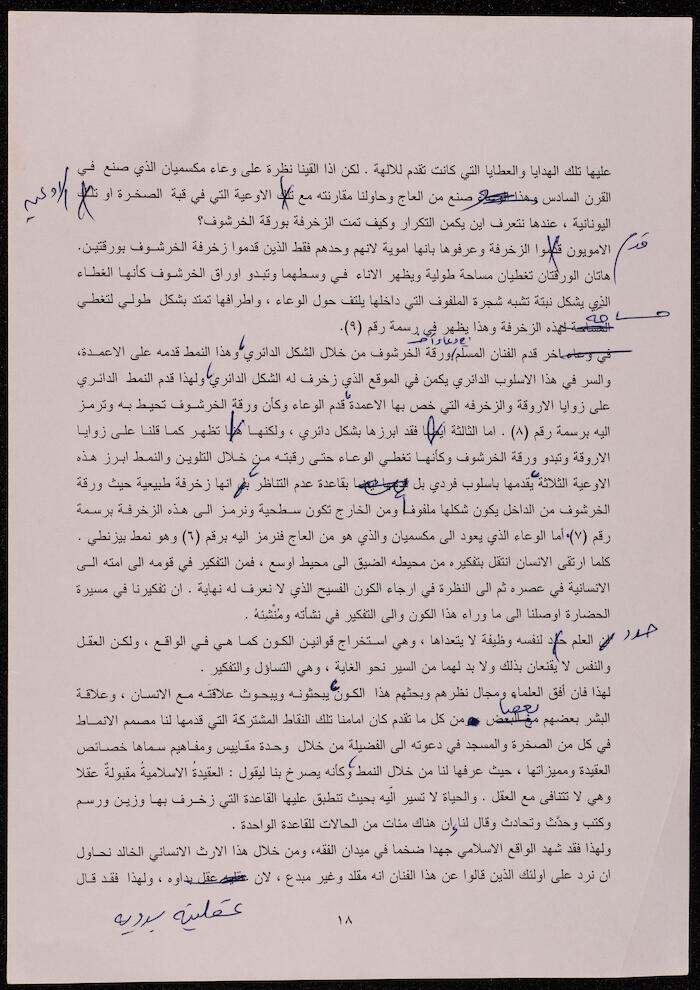 عليها تلك الهدايا والعطايا التي كانت تقدم للالهة . لكن اذا القينا نظرة على وعاء مكسميان الذي صنع في
القرن السادس وهذا الوعاء صنع من العاج وحاولنا مقارنته مع تلك الاوعية التي في قبة الصخرة او تلك الاوعية
اليونانية ، عندها نتعرف اين يكمن التكرار وكيف تمت الزخرفة بورقة الخرشوف؟
الامويون قدموا الزخرفة وعرفوها بانها اموية لانهم وحدهم فقط الذين قدموا زخرفة الخرشوف بورقتين. قدم
هاتان الورقتان تغطيان مساحة طولية ويظهر الاناء في وسطهما وتبدو اوراق الخرشوف كأنها الغطاء
الذي يشكل نبتة تشبه شجرة الملفوف التي داخلها يلتف حول الوعاء ، واطرافها تمتد بشكل طولي لتغطي
المساحة لهذه الزخرفة وهذا يظهر في رسمة رقم (٩). مساحة
في وعاء اخر قدم الفنان المسلم في وعاء اخر ورقة الخرشوف من خلال الشكل الدائري، وهذا النمط قدمه على الاعمدة،
والسر في هذا الاسلوب الدائري يكمن في الموقع الذي زخرف له الشكل الدائري، ولهذا قدم النمط الدائري
على زوايا الاروقة والزخرفه التي خص بها الاعمدة، قدم الوعاء وكأن ورقة الخرشوف تحيط به وترمز
اليه برسمة رقم (٨) . اما الثالثة ايضا فقد ابرزها بشكل دائري ، ولكنها هنا تظهر كما قلنا على زوايا
الاروقة وتبدو ورقة الخرشوف وكأنها تغطي الوعاء حتى رقبته من خلال التلوين والنمط ابرز هذه
الاوعية الثلاثة، يقدمها باسلوب فردي بل بقاعدة عدم التناظر، بل انها زخرفة طبيعية حيث ورقة
الخرشوف من الداخل يكون شكلها ملفوفا ومن الخارج تكون سطحية ونرمز الى هذه الزخرفة برسمة
رقم (٧)، أما الوعاء الذي يعود الى مكسميان والذي هو من العاج فنرمز اليه برقم (٦) وهو نمط بيزنطي .
كلما ارتقى الانسان انتقل بتفكيره من محيطه الضيق الى محيط اوسع ، فمن التفكير في قومه الى امته الى
الانسانية في عصره ثم الى النظرة في ارجاء الكون الفسيح الذي لا نعرف له نهاية . ان تفكيرنا في مسيرة
الحضارة اوصلنا الى ما وراء هذا الكون والى التفكير في نشأته ومُنْشئهُ .
ان العلم حدد لنفسه وظيفة لا يتعداها ، وهي استخراج قوانين الكون كما هي في الواقع ، ولكن العقل
والنفس لا يقنعان بذلك ولا بد لهما من السير نحو الغاية ، وهي التساؤل والتفكير .
لهذا فان أفق العلماء ومجال نظرهم وبحثهم هذا الكون، يبحثونه ويبحوث علاقته مع الانسان ، وعلاقة
البشر بعضهم مع البعض بعضا من كل ما تقدم كان امامنا تلك النقاط المشتركة التي قدمها لنا مصمم الانماط
في كل من الصخرة والمسجد في دعوته الى الفضيلة من خلال وحدة مقاييس ومفاهيم سماها خصائص
العقيدة ومميزاتها ، حيث عرفها لنا من خلال النمط، وكأنه يصرخ بنا ليقول : العقيدةُ الاسلاميةُ مقبولةٌ عقلا
وهي لا تتنافى مع العقل . والحياة لا تسير آليه بحيث تنطبق عليها القاعدة التي زخرف بها وزين ورسم
وكتب وحدّث وتحادث وقال لنا، إن هناك مئات من الحالات للقاعدة الواحدة .
ولهذا فقد شهد الواقع الاسلامي جهدا ضخما في ميدان الفقه، ومن خلال هذا الارث الانساني الخالد نحاول
ان نرد على اولئك الذين قالوا عن هذا الفنان انه مقلد وغير مبدع ، لان عقليه عقل بداوه ، ولهذا فقد قال
عقليته بدوية
١٨